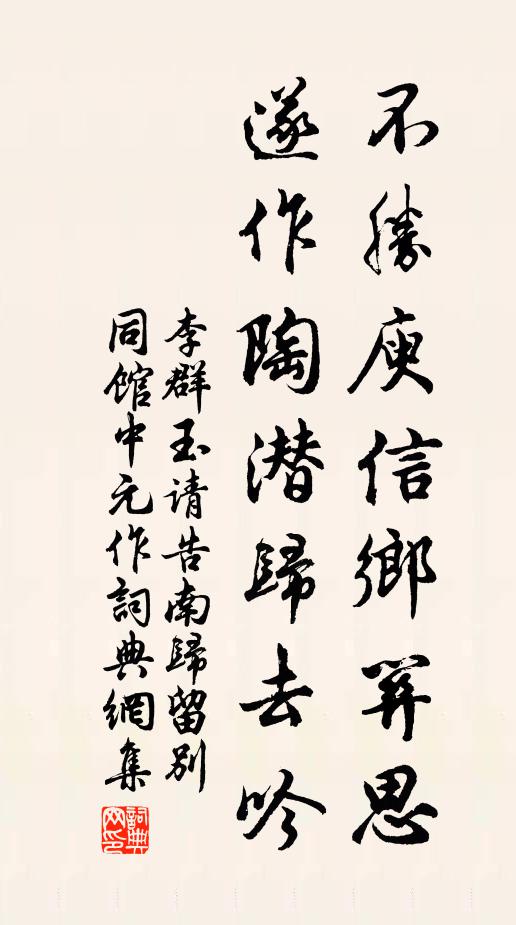 不勝庾信鄉關思
遂作陶潜歸去吟
李群玉请告南歸留别
同館中元作詞典網集
詞典网印